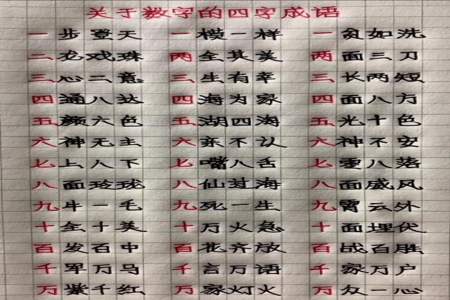 关于数字的四字成语
一步登天 一模一样 一贫如洗
二龙戏珠 两全其美 两面三刀
三心二意 三生有幸 三长两短
四通八达 四海为家 四面八方
五颜六色 五湖四海 五光十色
六神无主 六亲不认 六神不安
七上八下 七嘴八舌 七零八落
八面玲珑 八仙过海 八面威风
九牛一毛 九死一生 九霄云外
十全十美 十万火急 十面埋伏
百发百中 百花齐放 百战百胜
千军万马 千言万语 千家万户
万紫千红 万家灯火 万众一心